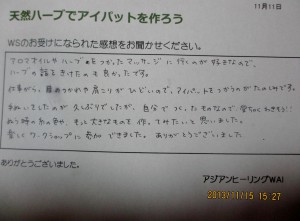 11月11日
天然ハーブでアイパットを作ろう
WSのお受けになられた感想をお聞かせください。
アロマオイルやハーブをつかったマッサージに行くのが好きなので、
ハーブの話もきけたのも良かったです。
仕事がら、眼のつかれや肩こりがひどいので、アイパットをつかうのがたのしみです。
ぬいものしたのが久しぶりでしたが、自分でつくったものなので、愛ちゃくわきそう!!
ぬう時の糸の色や、もっと大きなものを作ってみたいと思いました。
楽しくワークショップに参加できました。ありがとうございました。
ありがとうございました。
アジアンヒーリングWAI
2013/11/15 15:27